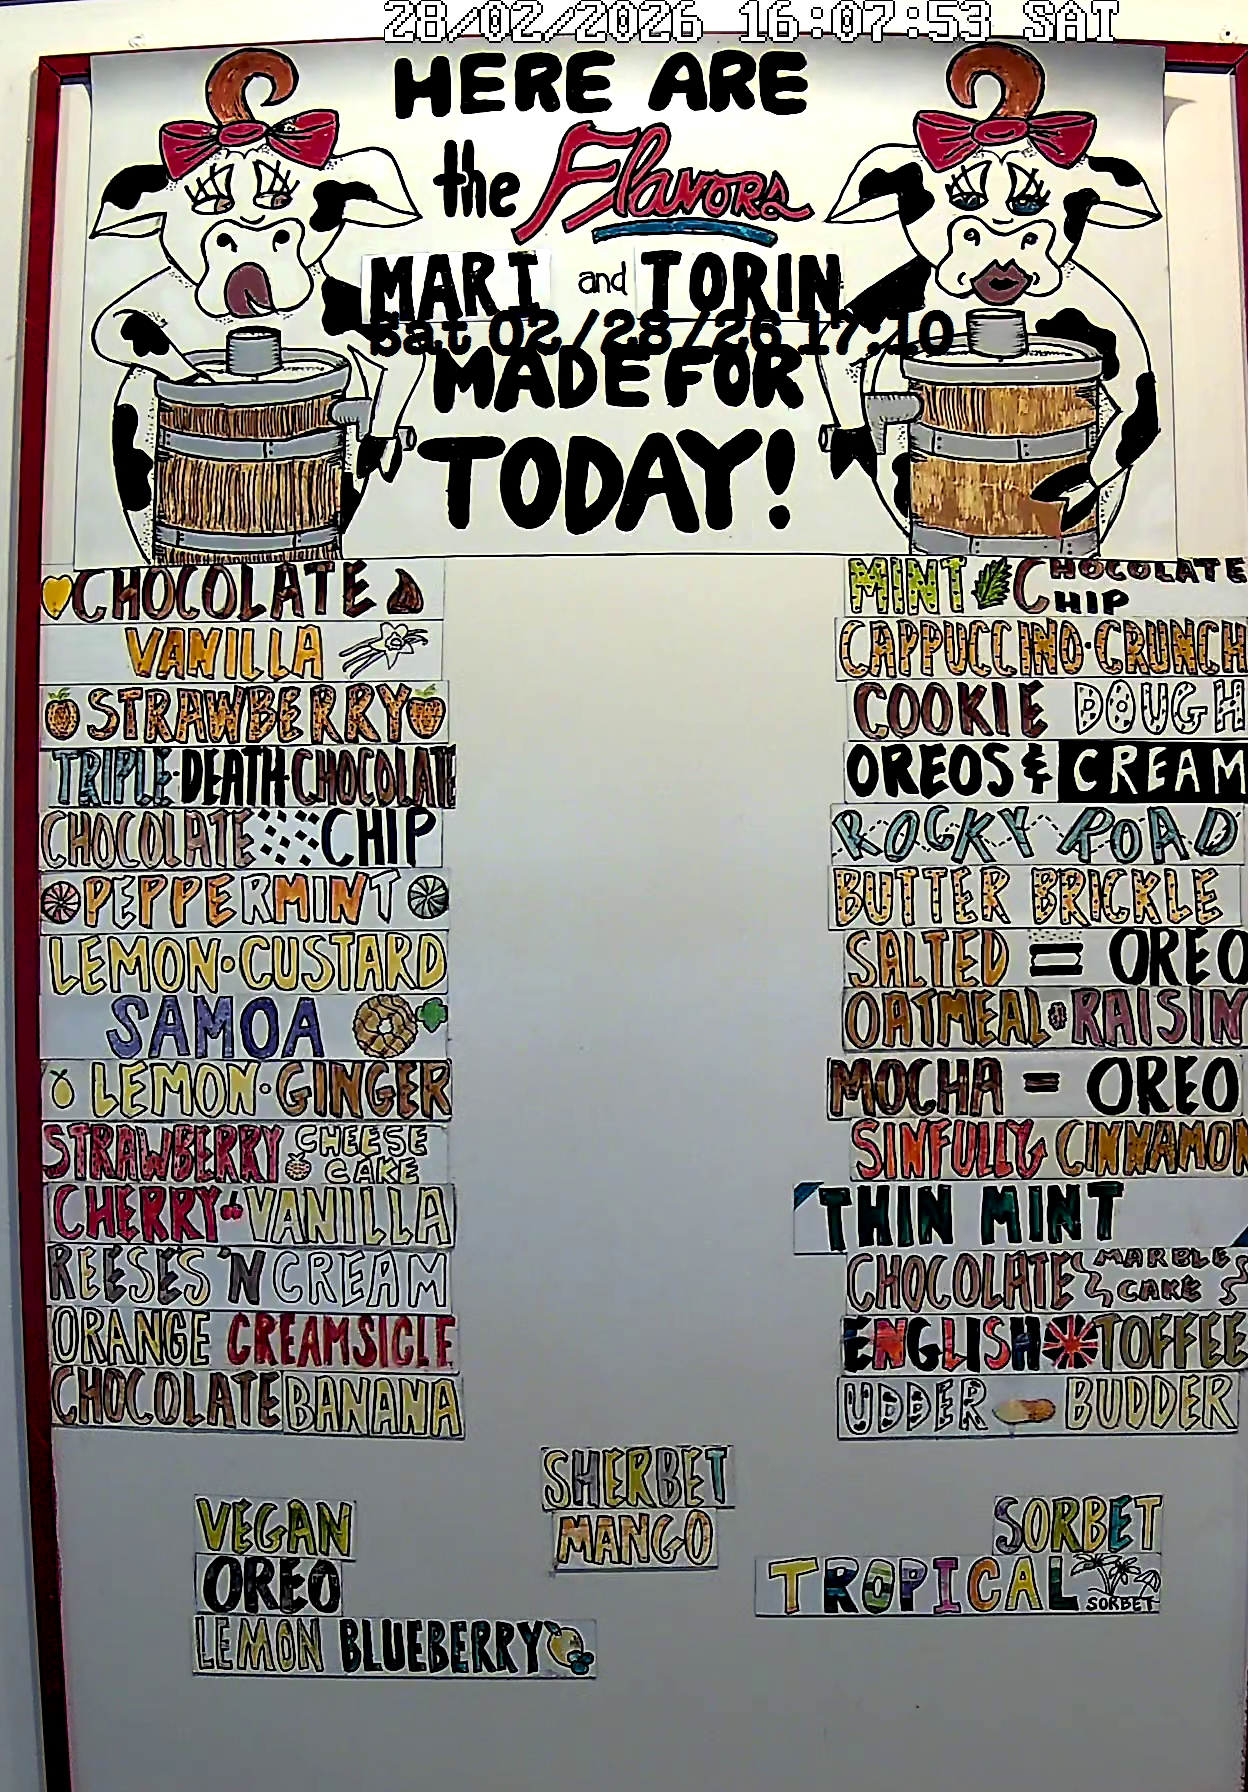 28/02/2026 16:07:53 SAT
HERE ARE
the Flavors
MARI and TORIN
Sat 02/28/26 17:10
MADE FOR
TODAY!
CHOCOLATE
VANILLA
STRAWBERRY
TRIPLE·DEATH·CHOCOLATE
CHOCOLATE CHIP
PEPPERMINT
LEMON·CUSTARD
SAMOA
LEMON·GINGER
STRAWBERRY CHEESE CAKE
CHERRY VANILLA
REESES 'N CREAM
ORANGE CREAMSICLE
CHOCOLATE BANANA
MINT CHOCOLATE CHIP
CAPPUCCINO·CRUNCH
COOKIE DOUGH
OREOS & CREAM
ROCKY ROAD
BUTTER BRICKLE
SALTED = OREO
OATMEAL RAISIN
MOCHA = OREO
SINFULLY CINNAMON
THIN MINT
CHOCOLATE MARBLE CAKE
ENGLISH TOFFEE
UDDER BUDDER
VEGAN
OREO
LEMON BLUEBERRY
SHERBET
MANGO
SORBET
TROPICAL SORBET